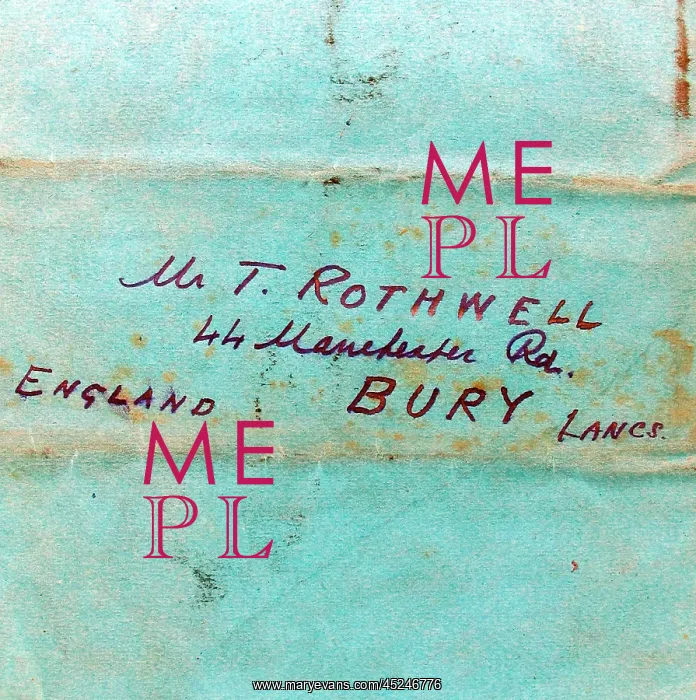 ME
PL
Mr T. ROTHWELL
44 Manchester Rd.
BURY LANCS.
ENGLAND
ME
PL
www.maryevans.com/45246776